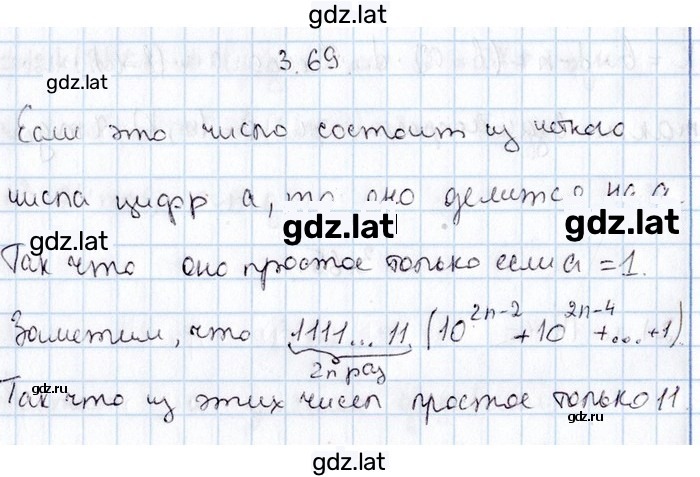 gdz.lat
3.69
gdz.lat
Если это число состоит из четного
числа цифр a, то оно делится на a.
gdz.lat
gdz.lat
gdz.lat
Так что оно простое только если a = 1.
Заметим, что 1111...11 (10^{2n-2} + 10^{2n-4} + ... + 1)
2n раз
gdz.lat
gdz.lat
Так что из этих чисел простое только 11.
gdz.lat